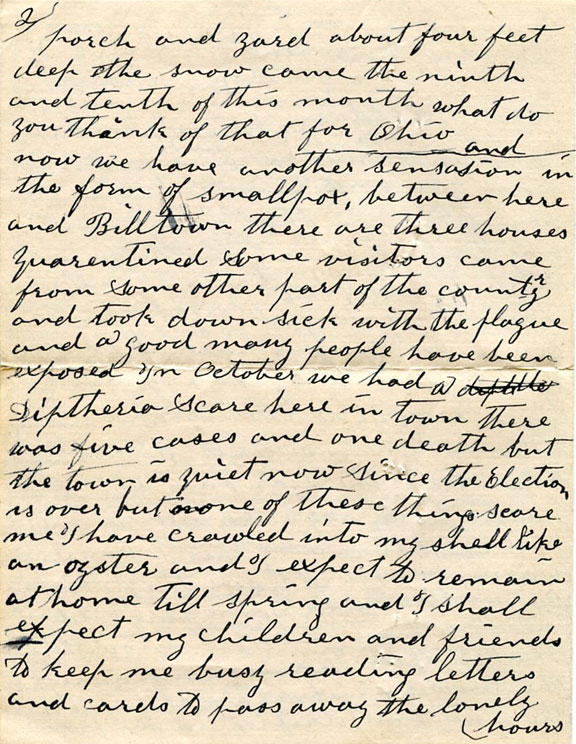 2)
porch and yard about four feet
deep the snow came the ninth
and tenth of this month what do
you think of that for Ohio and
now we have another sensation in
the form of smallpox, between here
and Billtown there are three houses
quarentined some visitors came
from some other part of the country
and took down sick with the plague
and a good many people have been
exposed In October we had a
Diptheria scare here in town there
was five cases and one death but
the town is quiet now since the Election
is over but none of these things scare
me I have crawled into my shell like
an oyster and I expect to remain
at home till spring and I shall
expect my children and friends
to keep me busy reading letters
and cards to pass away the lonely
hours